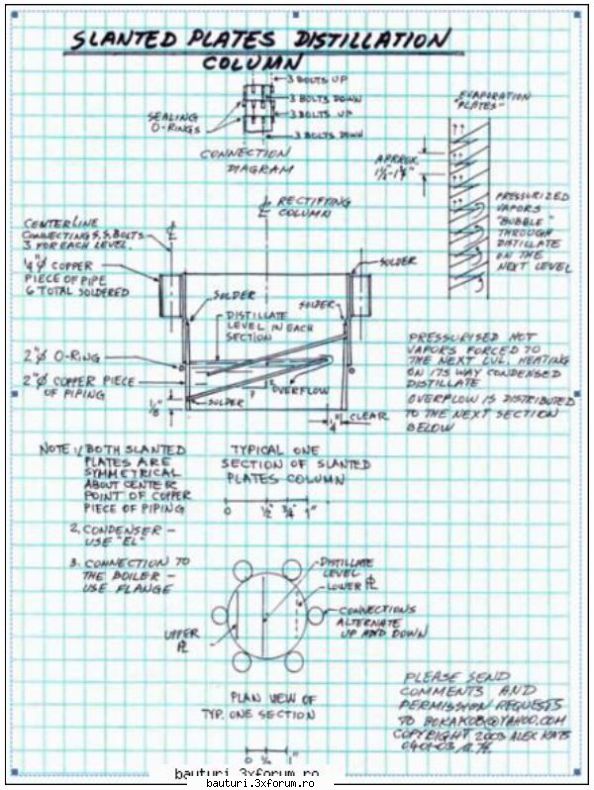 SLANTED PLATES DISTILLATION
COLUMN
3 BOLTS UP
3 BOLTS DOWN
3 BOLTS UP
3 BOLTS DOWN
SEALING
O-RINGS
CONNECTION
DIAGRAM
EVAPORATION
"PLATES"
APPROX.
1¼"-1½"
PRESSURIZED
VAPORS
"BUBBLE"
THROUGH
DISTILLATE
ON THE
NEXT LEVEL
RECTIFYING
COLUMN
CENTERLINE
CONNECTING S.S. BOLTS
3 FOR EACH LEVEL.
¼"Ø COPPER
PIECE OF PIPE
6 TOTAL SOLDERED
SOLDER
SOLDER
SOLDER
DISTILLATE
LEVEL IN EACH
SECTION
2"Ø O-RING
2"Ø COPPER PIECE
OF PIPING
OVERFLOW
SOLDER
1/8"
¼" CLEAR
PRESSURISED HOT
VAPORS FORCED TO
THE NEXT LVL. HEATING
ON ITS WAY CONDENSED
DISTILLATE
OVERFLOW IS DISTRIBUTED
TO THE NEXT SECTION
BELOW
NOTE 1/ BOTH SLANTED
PLATES ARE
SYMMETRICAL
ABOUT CENTER
POINT OF COPPER
PIECE OF PIPING
2. CONDENSER -
USE "EL"
3. CONNECTION TO
THE BOILER -
USE FLANGE
TYPICAL ONE
SECTION OF SLANTED
PLATES COLUMN
0 ½" ¾" 1"
DISTILLATE
LEVEL
LOWER PL
CONNECTIONS
ALTERNATE
UP AND DOWN
UPPER
PL
PLAN VIEW OF
TYP. ONE SECTION
PLEASE SEND
COMMENTS AND
PERMISSION REQUESTS
TO BOKAKOB@YAHOO.COM
COPYRIGHT 2003 ALEX
04-01-03
1"
bauturi.3xforum.ro
bauturi.3xforum.ro